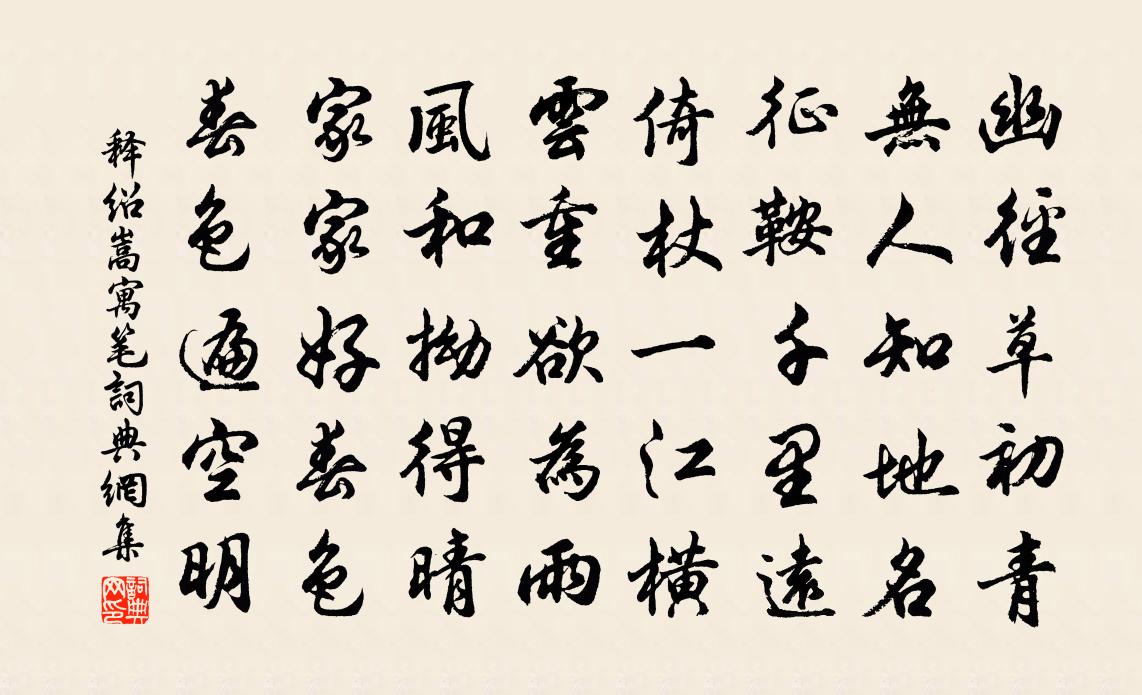 幽徑草初青
無人知地名
征鞍千里遠
倚杖一江橫
雲重欲為雨
風和拗得晴
家家好春色
春色遍空明
释绍嵩寓笔詞典網集
詞典网印